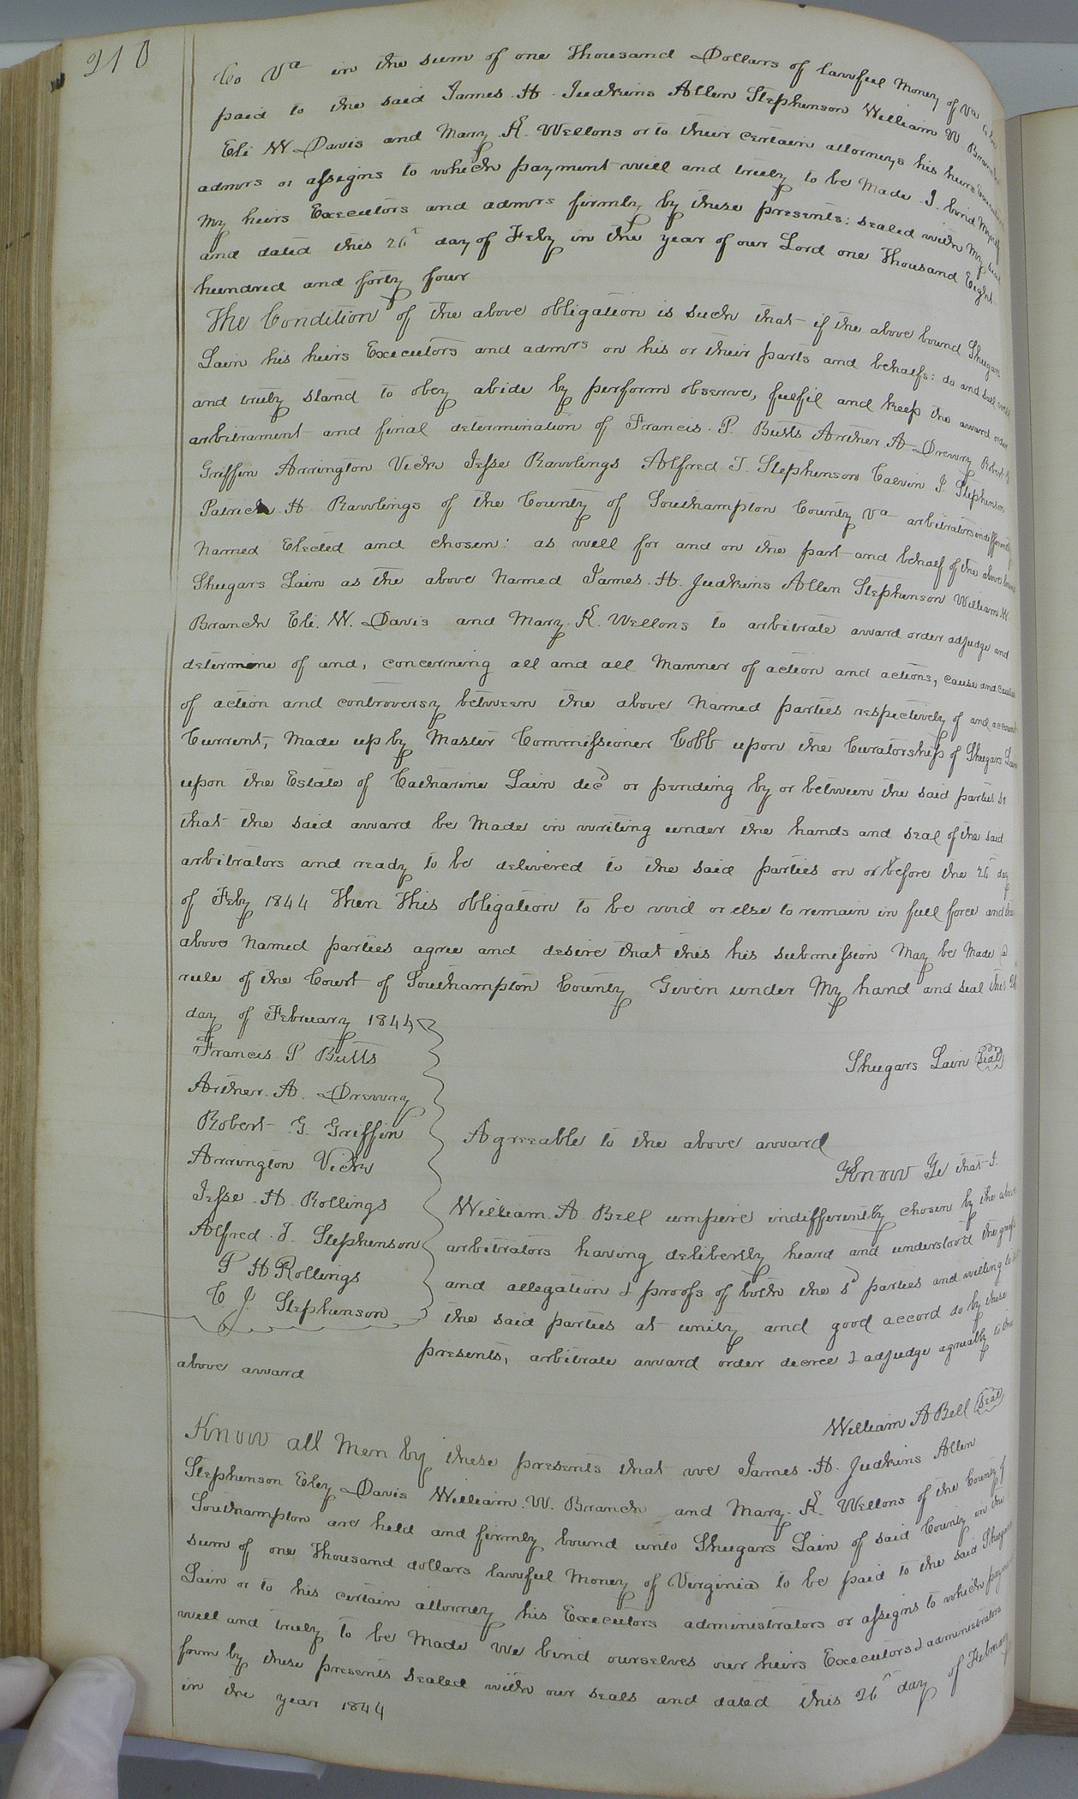 210
Co Va in the sum of one Thousand Dollars of lawful Money of Va to be
paid to the said James. H. Judkins Allen Stephenson William W. Branch
Eli W Davis and Mary. K. Wellons or to their certain attorneys his heirs
admors or assigns to which payment will and truly to be Made. I. bind Myself
My heirs Executors and admors firmly by these presents: sealed with My seal
and dated this 26t day of Feby in the year of our Lord one Thousand Eight
hundred and forty four
The Condition of the above obligation is such that if the above bound Shugars
Lain his heirs Executors and admrs on his or their parts and behalfs: do and
and truly stand to obey abide by perform observe, fulfil and keep the award
arbitrament and final determination of Francis. P. Butts Arther A Drewry Robert G
Griffin Arrington Vick Jesse Rawlings Alfred J. Stephenson Calvin J. Stephenson
Patrick. H Rawlings of the County of Southampton County Va arbitrators indifferently
Named Elected and chosen: as well for and on the part and behalf of the above
Shugars Lain as the above Named James. H. Judkins Allen Stephenson William W
Branch Eli. W. Davis and Mary. K. Wellons to arbitrate award order adjudge and
determine of and, concerning all and all Manner of action and actions, cause and causes
of action and controversy between the above Named parties respectively of and
Current, Made up by Master Commissioner Cobb upon the Curatorship of Shugars Lain
upon the Estate of Catharine Lain decd or pending by or between the said parties so
that the said award be Made in writing under the hands and seal of the said
arbitrators and ready to be delivered to the said parties on or before the 26t day
of Feby 1844 Then This obligation to be void or else to remain in full force and the
above Named parties agree and desire that this his submission May be Made a
rule of the Court of Southampton County Given under My hand and seal this 26
day of February 1844
Francis P Butts
Shugars Lain Seal
Arther. A. Drewry
Robert G. Griffin
Agreeable to the above award
Arrington Vick
Know Ye that I.
Jesse. H. Rollings
William. A. Bell umpire indifferently chosen by the above
Alfred. J. Stephenson
arbitrators having delibertly heard and understood the
P H Rollings
and allegation & proofs of both the sd parties and willing to
C J Stephenson
the said parties at unity and good accord do by these
presents, arbitrate award order decree & adjudge agreably to the
above award
William A Bell Seal
Know all Men by these presents that we James. H. Judkins Allen
Stephenson Eley Davis William. W. Branch and Mary. K. Wellons of the County of
Southampton are held and firmly bound unto Shugars Lain of said County in the
sum of one Thousand dollars lawful Money of Virginia to be paid to the said Shugars
Lain or to his certain attorney his Executors administrators or assigns to which payment
well and truly to be Made We bind ourselves our heirs Executors & administrators
firm by these presents sealed with our seals and dated this 26th day of February
in the year 1844